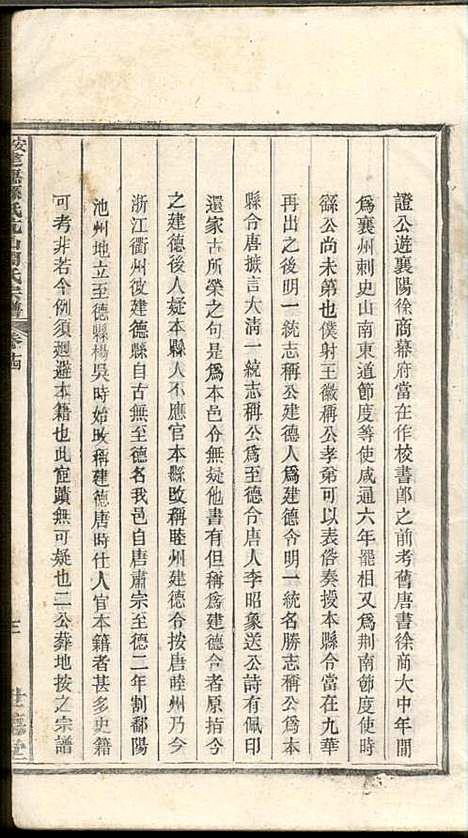 證公遊襄陽徐商幕府當在作校書郎之前考舊唐書徐商大中年間
爲襄州刺史山南東道節度等使咸通六年罷相又爲荆南節度使時
繇公尚未第也僕射王徽稱公孝弟可以表俗奏授本縣令當在九華
再出之後明一統志稱公建德人爲建德令明一統名勝志稱公爲本
縣令唐摭言大淸一統志稱公爲至德令唐人李昭象送公詩有佩印
還家古所榮之句是爲本邑令無疑他書有但稱爲建德令者原指今
之建德後人疑本縣人不應官本縣改稱睦州建德令按唐睦州乃今
浙江衢州彼建德縣自古無至德名我邑自唐肅宗至德二年割鄱陽
池州地立至德縣楊吳時始改稱建德唐時仕人官本籍者甚多史籍
可考非若今例須迴避本籍也此宦蹟無可疑也二公葬地按之宗譜
周氏宗譜
卷十四